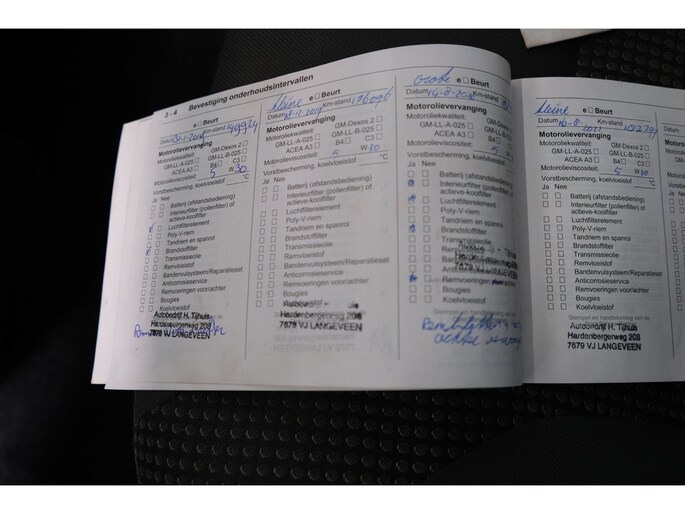 3 - 4 Bevestiging onderhoudsintervallen
e Beurt
Datum Km-stand
Motorolievervanging
Motoroliekwaliteit:
GM-Dexos 2
GM-LL-A-025 GM-LL-B-025
ACEA A3 B4 C3
Motorolieviscositeit: 5 W 30
Vorstbescherming, koelvloeistof °C
Ja Nee
Batterij (afstandsbediening)
Interieurfilter (pollenfilter) of
actieve-koolfilter
Luchtfilterelement
Poly-V-riem
Tandriem en spanrol
Brandstoffilter
Transmissieolie
Remvloeistof
Bandenvulsysteem/Reparatieset
Anticorrosieservice
Remvoeringen voor/achter
Bougies
Koelvloeistof
Autobedrijf H. Tijhuis
Hardenbergerweg 208
7679 VJ LANGEVEEN
kleine
e Beurt
Datum Km-stand 196096
Motorolievervanging
Motoroliekwaliteit:
GM-Dexos 2
GM-LL-A-025 GM-LL-B-025
ACEA A3 B4 C3
Motorolieviscositeit: 5 W 30
Vorstbescherming, koelvloeistof °C
Ja Nee
Batterij (afstandsbediening)
Interieurfilter (pollenfilter) of
actieve-koolfilter
Luchtfilterelement
Poly-V-riem
Tandriem en spanrol
Brandstoffilter
Transmissieolie
Remvloeistof
Bandenvulsysteem/Reparatieset
Anticorrosieservice
Remvoeringen voor/achter
Bougies
Koelvloeistof
Hardenbergerweg 208
7679 VJ LANGEVEEN
grote
e Beurt
Datum Km-stand
Motorolievervanging
Motoroliekwaliteit:
GM-LL-A-025
ACEA A3
Motorolieviscositeit: 5
Vorstbescherming, koelvloeistof
Ja Nee
Batterij (afstandsbediening)
Interieurfilter (pollenfilter) of
actieve-koolfilter
Luchtfilterelement
Poly-V-riem
Tandriem en spanrol
Brandstoffilter
Remvoeringen
Bougies
Koelvloeistof
kleine
e Beurt
Datum Km-stand
Motorolievervanging
Motoroliekwaliteit:
GM-Dexos 2
GM-LL-A-025 GM-LL-B-025
ACEA A3 B4 C3
Motorolieviscositeit: 5 W 30
Vorstbescherming, koelvloeistof
Ja Nee
Batterij (afstandsbediening)
Interieurfilter (pollenfilter) of
actieve-koolfilter
Luchtfilterelement
Poly-V-riem
Tandriem en spanrol
Brandstoffilter
Transmissieolie
Remvloeistof
Bandenvulsysteem/Reparatieset
Anticorrosieservice
Remvoeringen voor/achter
Bougies
Koelvloeistof
Autobedrijf H. Tijhuis
Hardenbergerweg 208
7679 VJ LANGEVEEN